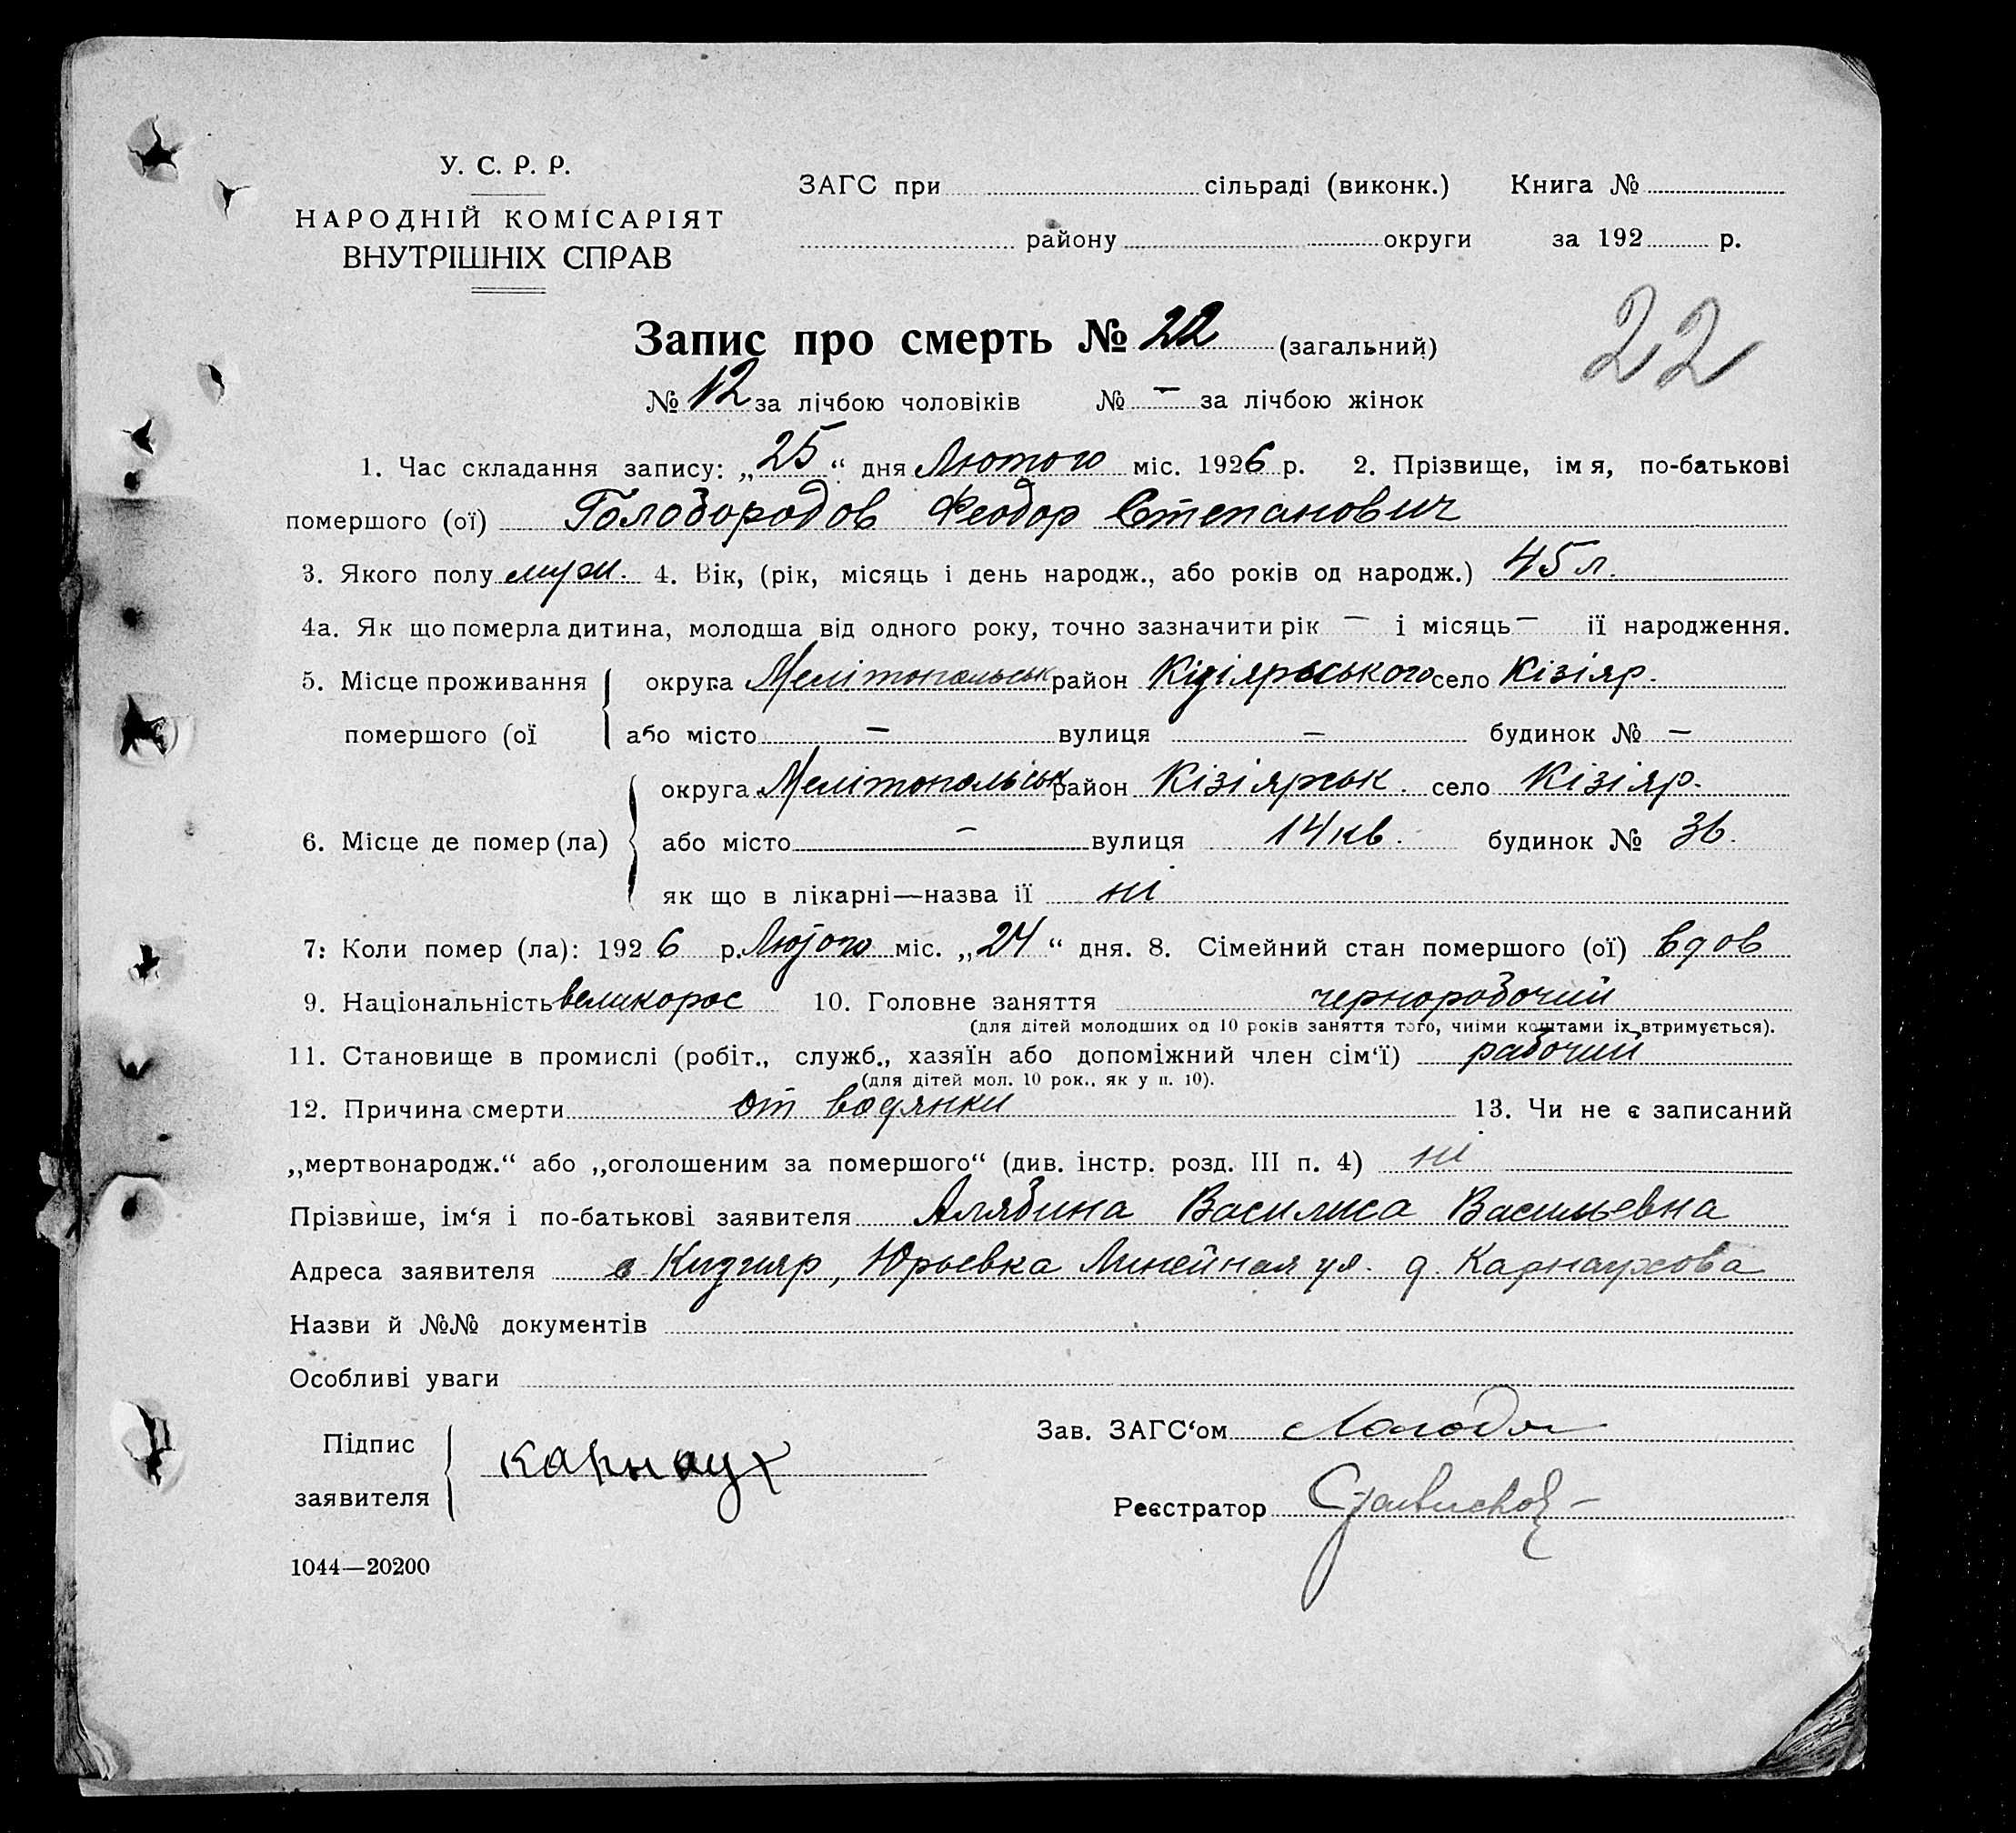 У. С. Р. Р.
НАРОДНІЙ КОМІСАРІЯТ
ВНУТРІШНІХ СПРАВ
ЗАГС при сільраді (виконк.) Книга №
району округи за 192 р.
Запис про смерть № 22 (загальний)
22
№ 12 за лічбою чоловіків № — за лічбою жінок
1. Час складання запису: „25“ дня Лютого міс. 1926 р. 2. Прізвище, імя, по-батькові
помершого (ої) Голобородов Феодор Степанович
3. Якого полу муж. 4. Вік, (рік, місяць і день народж., або років од народж.) 45 л.
4а. Як що померла дитина, молодша від одного року, точно зазначити рік — і місяць — ії народження.
5. Місце проживання округа Мелітопольськ район Кізіярського село Кізіяр.
помершого (ої або місто — вулиця — будинок № —
округа Мелітопольськ район Кізіярськ. село Кізіяр.
6. Місце де помер (ла) або місто — вулиця 14 кв. будинок № 36.
як що в лікарні—назва ії ні
7: Коли помер (ла): 1926 р. Лютого міс. „24“ дня. 8. Сімейний стан помершого (ої) вдов
9. Національність великорос 10. Головне заняття чернорабочий
(для дітей молодших од 10 років заняття того, чиїми коштами їх втримується).
11. Становище в промислі (робіт., служб., хазяїн або допоміжний член сім‘ї) рабочий
(для дітей мол. 10 рок., як у п. 10).
12. Причина смерти от водянки 13. Чи не є записаний
„мертвонародж.“ або „оголошеним за помершого“ (див. інстр. розд. III п. 4) ні
Прізвише, ім‘я і по-батькові заявителя Алябина Василиса Васильевна
Адреса заявителя с Кизияр, Юрьевка Линейная ул. д. Карнаухова
Назви й №№ документів
Особливі уваги
Підпис
заявителя карнаух
Зав. ЗАГС‘ом
Реєстратор
1044—20200